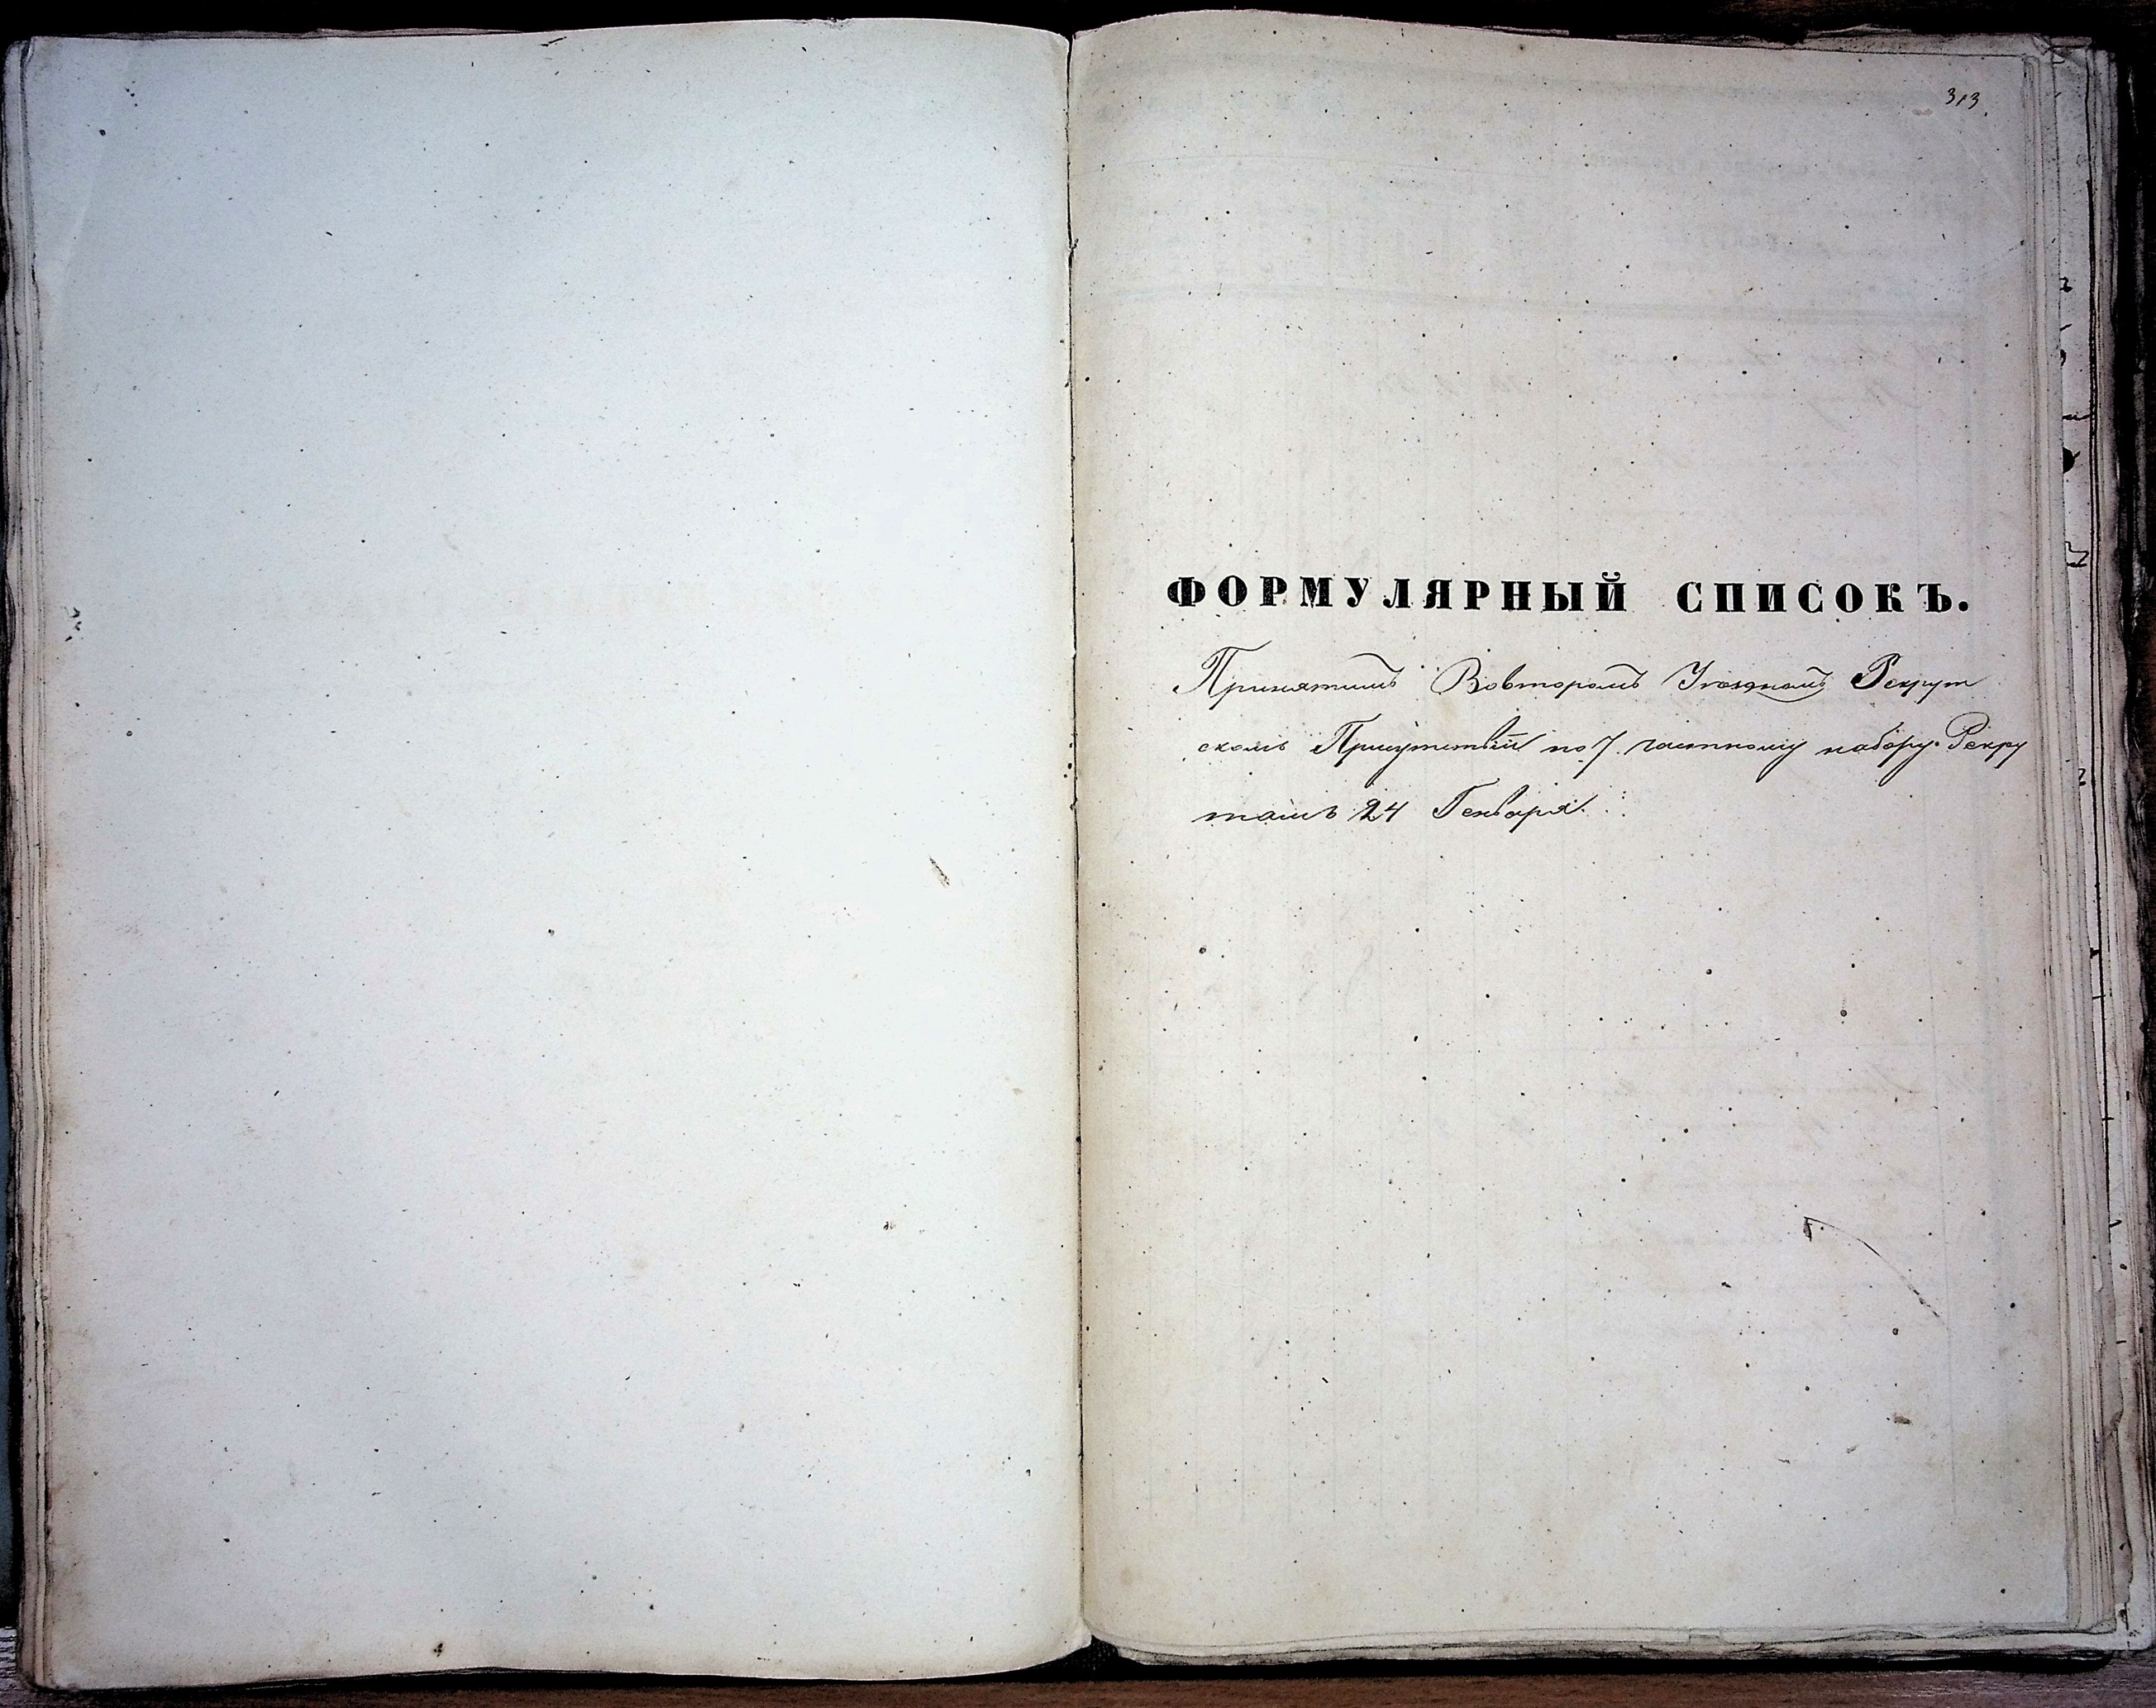 313
ФОРМУЛЯРНЫЙ СПИСОКЪ.
Принятымъ Вовторомъ Уѣздномъ Рекрут
скомъ Присутствіи по 7. частному набору Рекру
тамъ 24 Генваря.